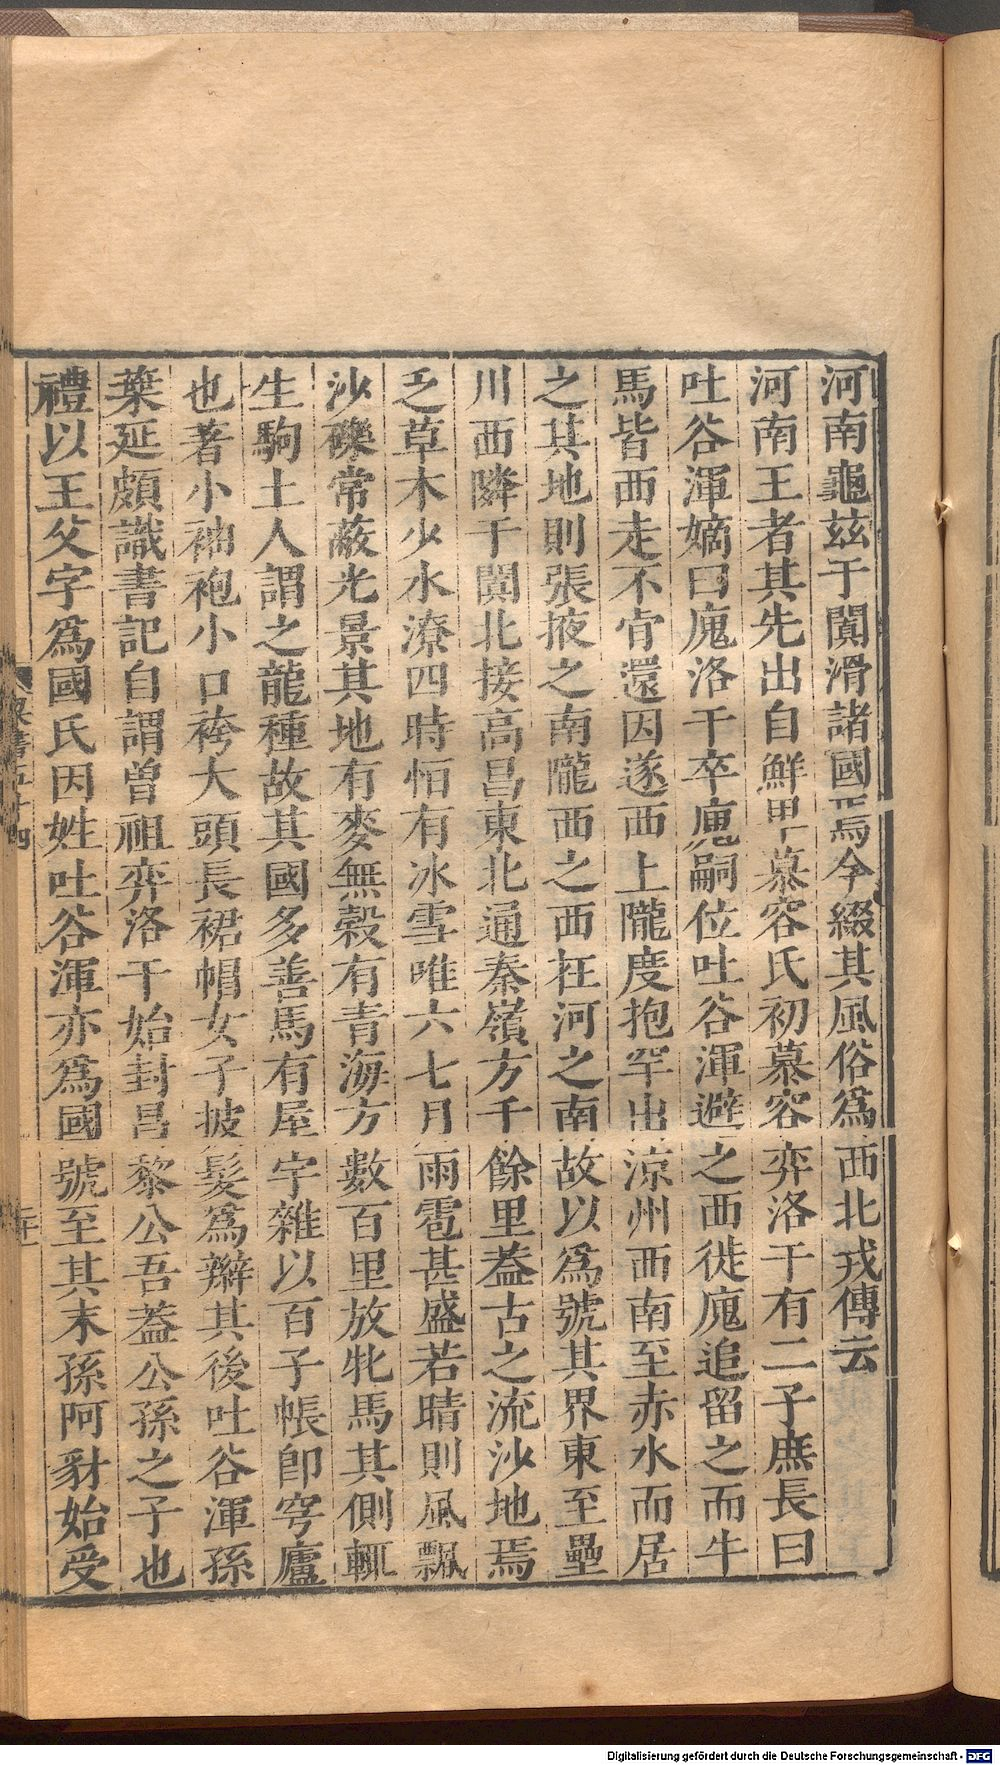 河南龜玆于闐滑諸國焉今綴其風俗爲西北戎傳云
河南王者其先出自鮮卑慕容氏初慕容弈洛干有二子庶長曰
吐谷渾嫡曰廆洛干卒廆嗣位吐谷渾避之西徙廆追留之而牛
馬皆西走不肯還因遂西上隴度抱罕出涼州西南至赤水而居
之其地則張掖之南隴西之西在河之南故以爲號其界東至壘
川西隣于闐北接高昌東北通秦嶺方千餘里葢古之流沙地焉
乏草木少水潦四時恒有冰雪唯六七月雨雹甚盛若晴則風飄
沙礫常蔽光景其地有麥無穀有青海方數百里放牝馬其側輒
生駒土人謂之龍種故其國多善馬有屋宇雜以百子帳卽穹廬
也著小袖袍小口袴大頭長裙帽女子披髮爲辮其後吐谷渾孫
葉延頗識書記自謂曽祖弈洛干始封昌黎公吾葢公孫之子也
禮以王父字爲國氏因姓吐谷渾亦爲國號至其末孫阿豺始受
梁書五十四
Digitalisierung gefördert durch die Deutsche Forschungsgemeinschaft - DFG